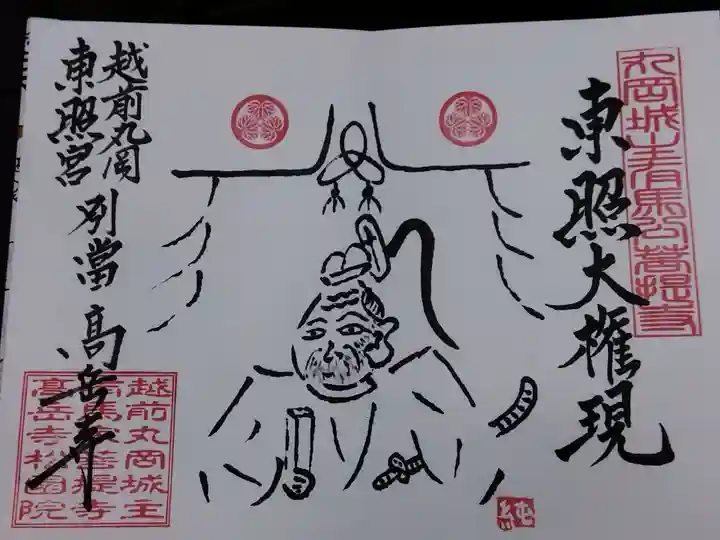 東照大権現
丸岡城主有馬公菩提寺
越前丸岡
東照宮
別當
高岳寺
越前丸岡城主
有馬家菩提寺
高岳寺松園院
純